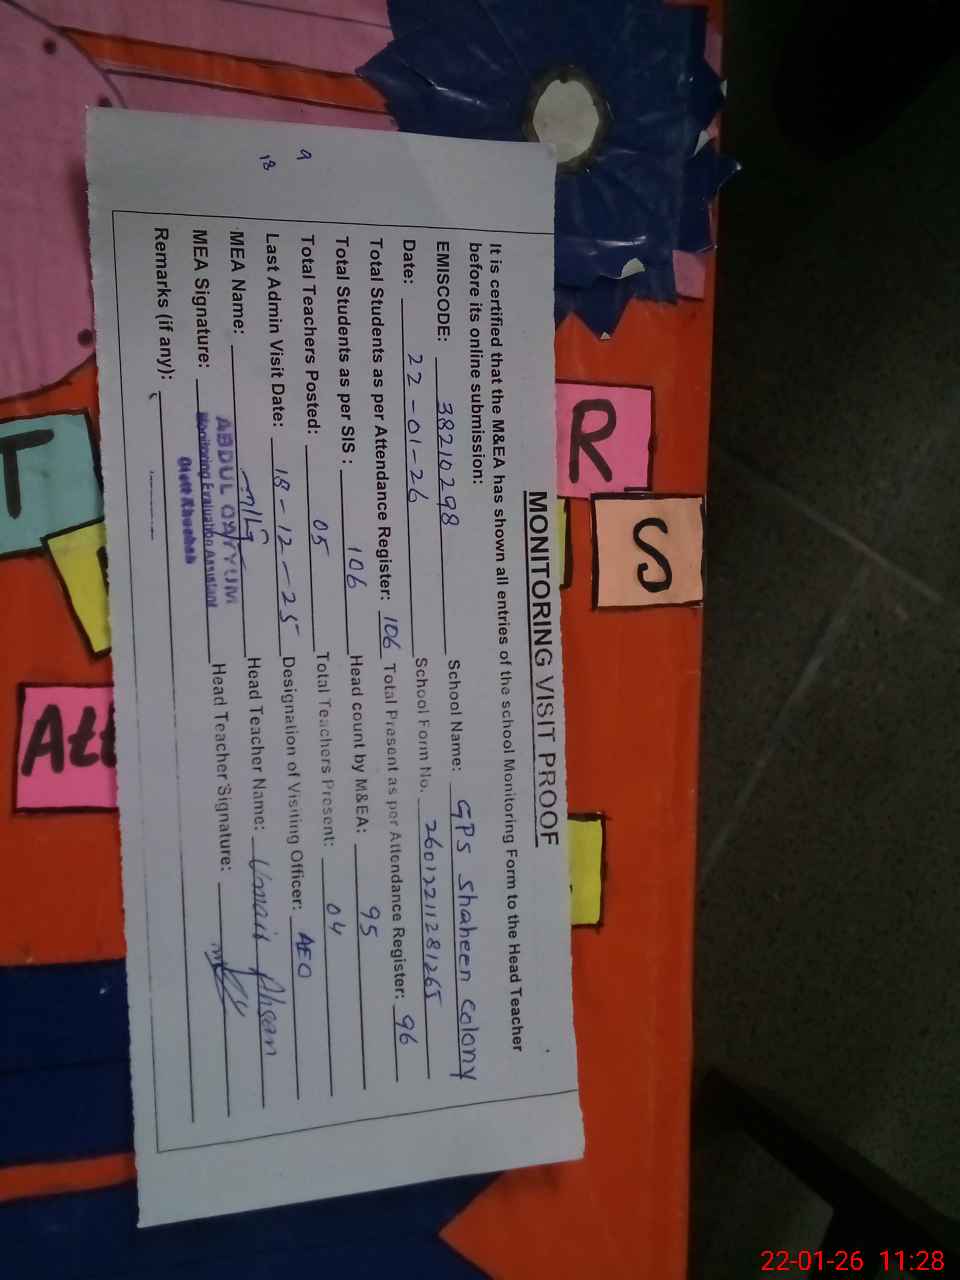 MONITORING VISIT PROOF
It is certified that the M&EA has shown all entries of the school Monitoring Form to the Head Teacher
before its online submission:
EMISCODE: 38210298 School Name: GPS Shaheen Colony
Date: 22-01-26 School Form No. 26012211281265
Total Students as per Attendance Register: 106 Total Present as per Attendance Register: 96
Total Students as per SIS : 106 Head count by M&EA: 95
Total Teachers Posted: 05 Total Teachers Present: 04
Last Admin Visit Date: 18-12-25 Designation of Visiting Officer: AEO
MEA Name: ABDUL QAYYUM Head Teacher Name: Umair Ahsan
MEA Signature: Monitoring Evaluation Assistant Head Teacher Signature:
Distt Khushab
Remarks (if any):
9
18
R
S
T
Att
22-01-26 11:28